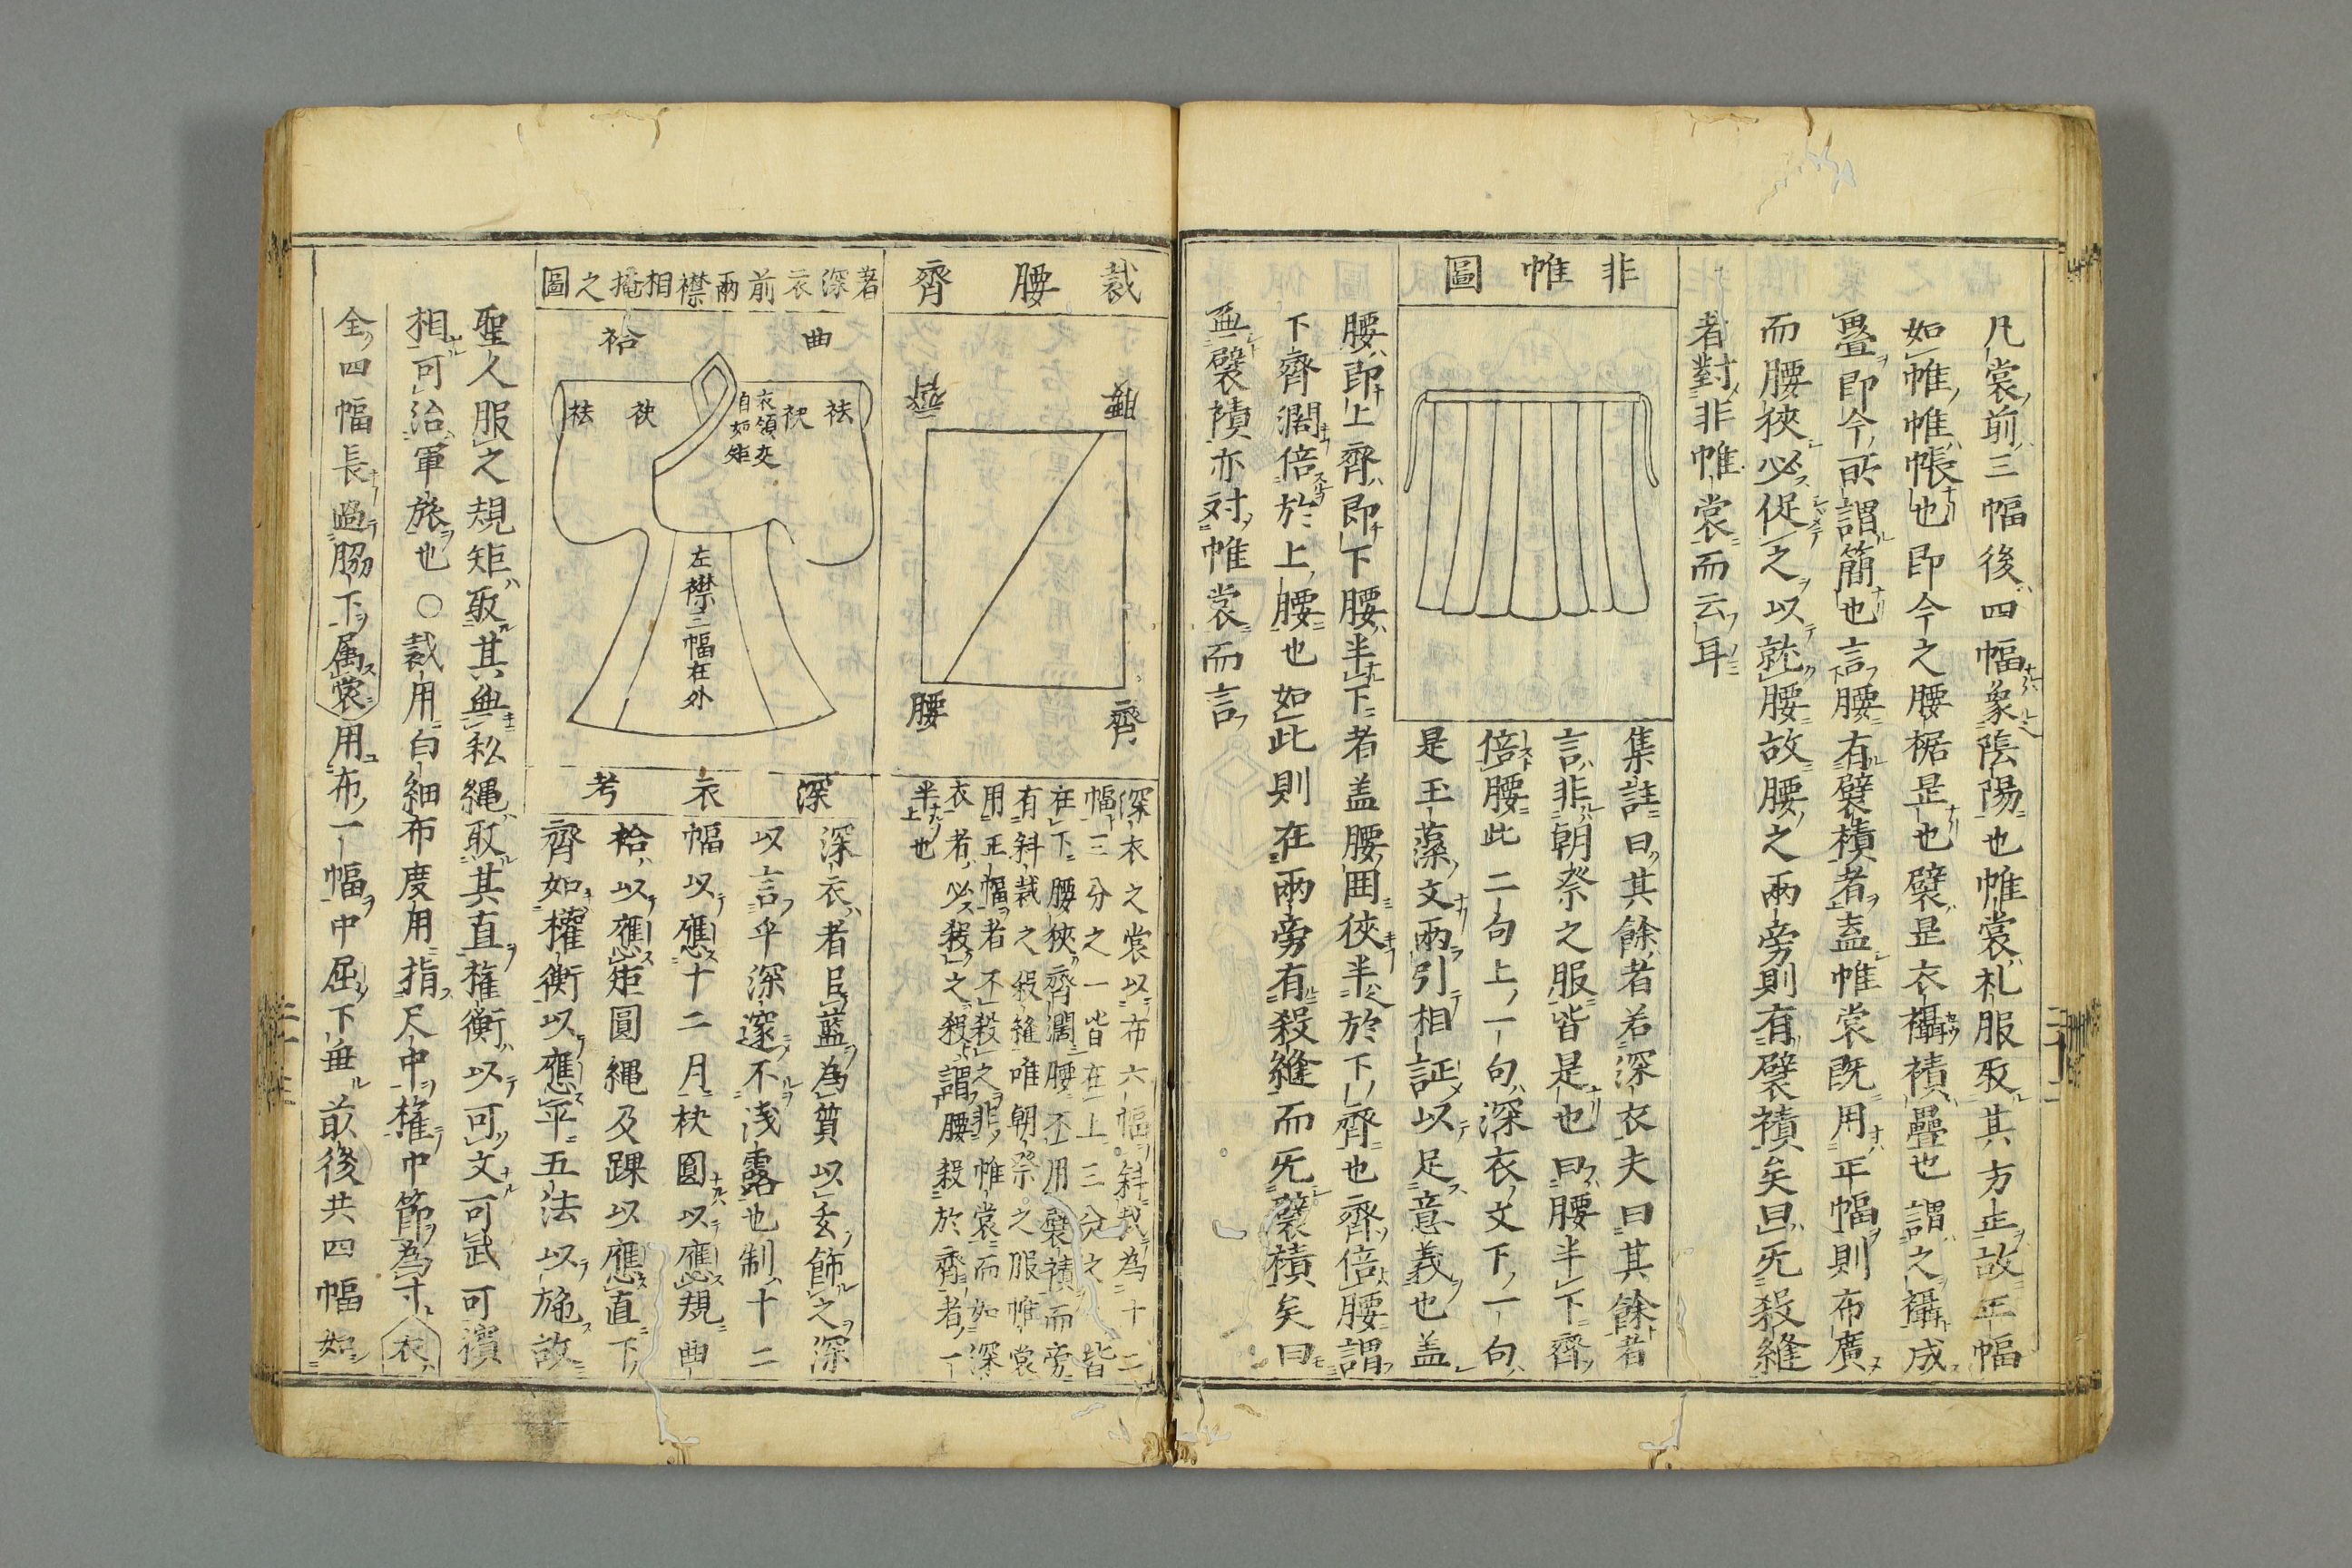 凡裳前三幅後四幅象陰陽也帷裳礼服取其方正故正幅
如帷帷帳也即今之腰裾是也襞是衣襵積疊也謂之襵成
畳即今所謂簡也言腰有襞積者盖帷裳既用正幅則布廣
而腰狹必促之以就腰故腰之兩旁則有襞積矣曰旡殺縫
者對非帷裳而云耳
非帷圖
集註曰其餘者若深衣夫曰其餘者
言非朝祭之服皆是也曰腰半下齊
倍腰此二句上一句深衣文下一句
是玉藻文兩引相証以足意義也盖
腰即上齊即下腰半下者盖腰囲狹半於下齊也齊倍腰謂
下齊濶倍於上腰也如此則在兩旁有殺縫而旡襞積矣曰
無襞積亦対帷裳而言
裁腰齊
齊
腰
深衣之裳以布六幅斜裁為十二
幅三分之一皆在上三分之二皆
在下腰狹齊濶腰不用襞積而旁
有斜裁之殺縫唯朝祭之服帷裳
用正幅者不殺之非帷裳而如深
衣者必殺之殺謂腰殺於齊者一
半上也
著深衣前兩襟相掩之圖
曲
袷
袪
袂
衣領交
自如矩
袂
袪
左襟三幅在外
深衣考
深衣者民藍為質以玄飾之深
以言乎深邃不浅露也制十二
幅以應十二月袂圓以應規曲
袷以應矩圓縄及踝以應直下
齊如權衡以應平五法以施故
聖人服之規矩取其無私縄取其直権衡以可文可武可濱
相可治軍旅也○裁用白細布度用指尺中権中節為寸衣
全四幅長過脇下属裳用布一幅中屈下垂前後共四幅如